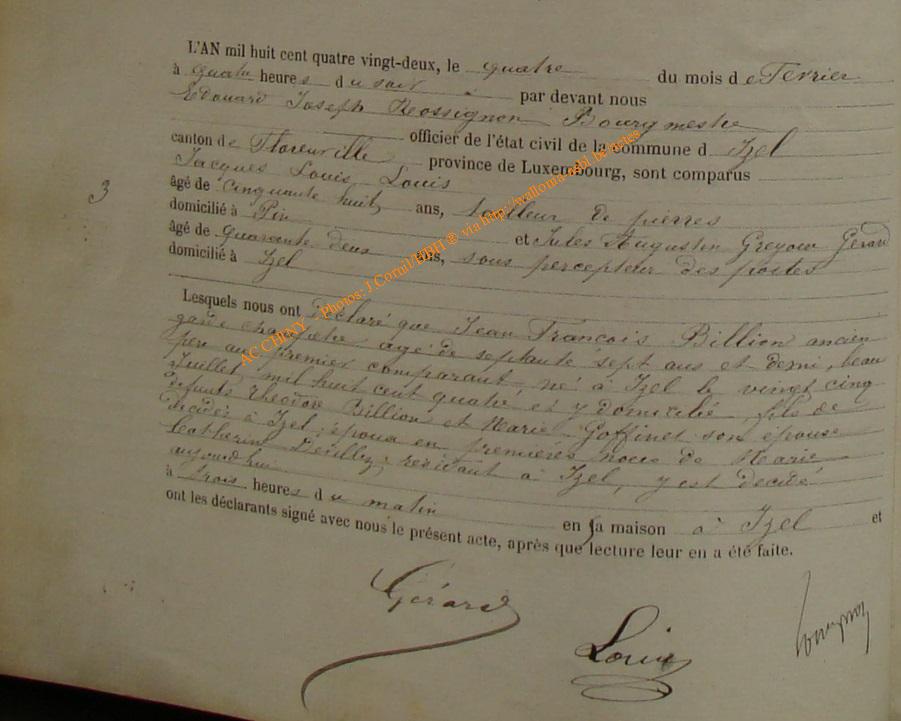 L'AN mil huit cent quatre vingt-deux, le quatre du mois de Fevrier
à quatre heures du soir par devant nous
Edouard Joseph Rossignon Bourgmestre
officier de l'état civil de la commune d Izel
canton de Florenville province de Luxembourg, sont comparus
Jacques Louis Louis
3
âgé de cinquante huit ans, tailleur de pierres
domicilié à Pin et Jules Augustin Gregoire Gérard
âgé de quarante deux ans, sous percepteur des postes
domicilié à Izel
Lesquels nous ont déclaré que Jean François Billion ancien
garde champêtre agé de septante sept ans et demi, beau
père au premier comparant né à Izel le vingt cinq
Juillet mil huit cent quatre et y domicilié fils de
défunts Théodore Billion et Marie Goffinet son épouse
décédés à Izel, époux en premières noces de Marie
Catherine résidant à Izel, y est décédé
aujourd'hui
à trois heures du matin en sa maison à Izel et
ont les déclarants signé avec nous le présent acte, après que lecture leur en a été faite.
AC CHINY - Photos: J Cornil BBH ® via http://wallonia-asbl.be/actes
Gérard
Louis